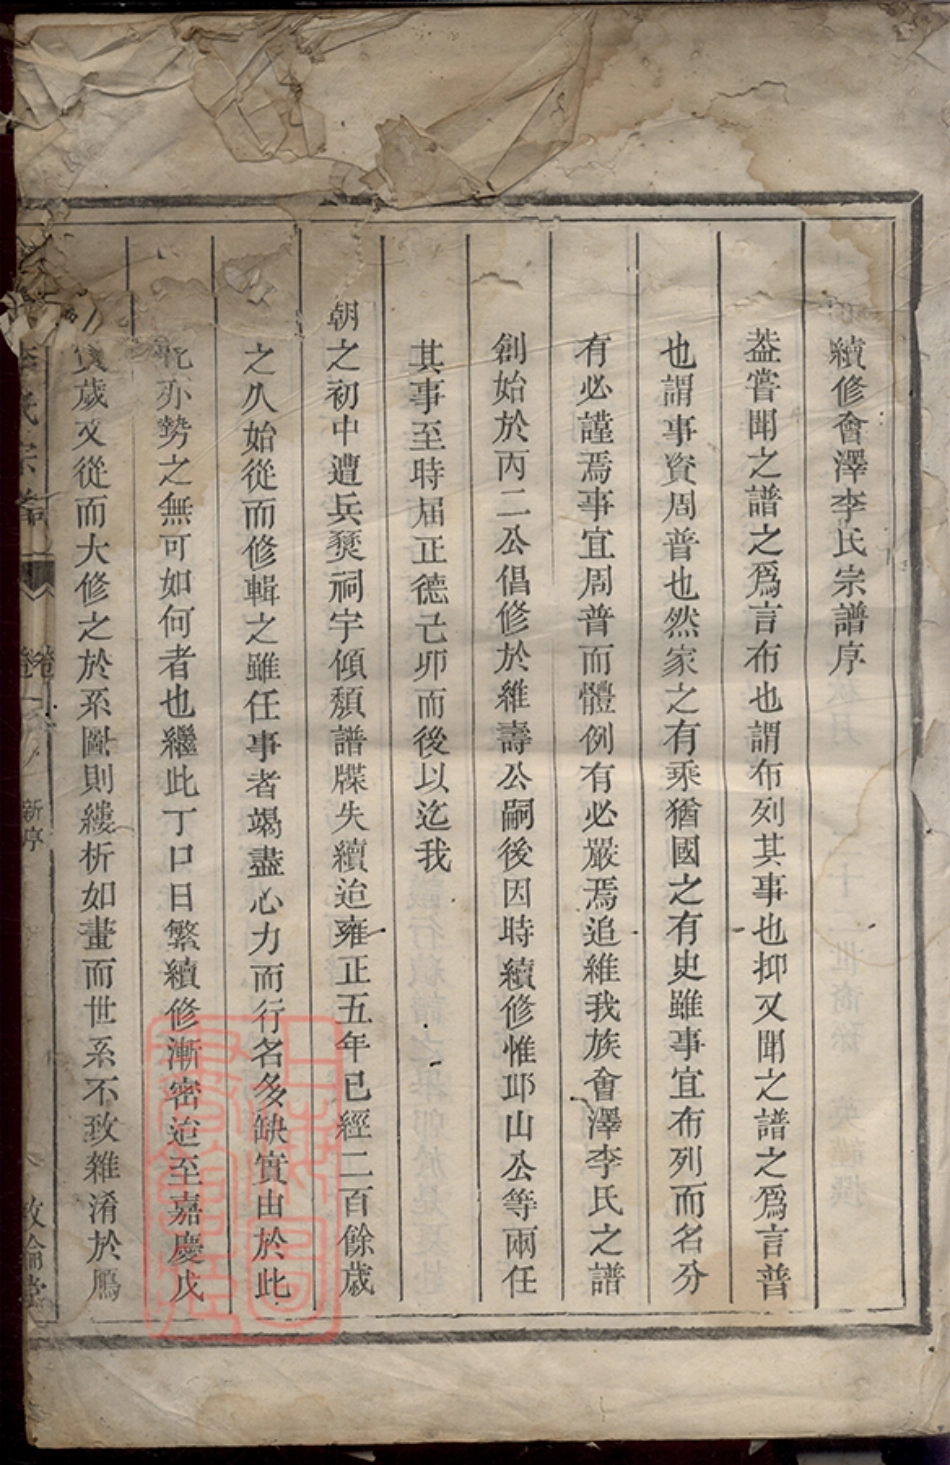 續修會澤李氏宗譜序
葢嘗聞之譜之爲言布也謂布列其事也抑又聞之譜之爲言普
也謂事資周普也然家之有乘猶國之有史雖事宜布列而名分
有必謹焉事宜周普而體例有必嚴焉追維我族會澤李氏之譜
創始於丙二公倡修於維壽公嗣後因時續修惟邛山公等兩任
其事至時届正德己卯而後以迄我
朝之初中遭兵燹祠宇傾頽譜牒失續迨雍正五年已經二百餘歲
之久始從而修輯之雖任事者竭盡心力而行名多缺實由於此
亦勢之無可如何者也繼此丁口日繁續修漸密迨至嘉慶戊
寅歲又從而大修之於系圖則縷析如畫而世系不致雜淆於鴈
李氏宗譜
卷
新序
敦倫堂